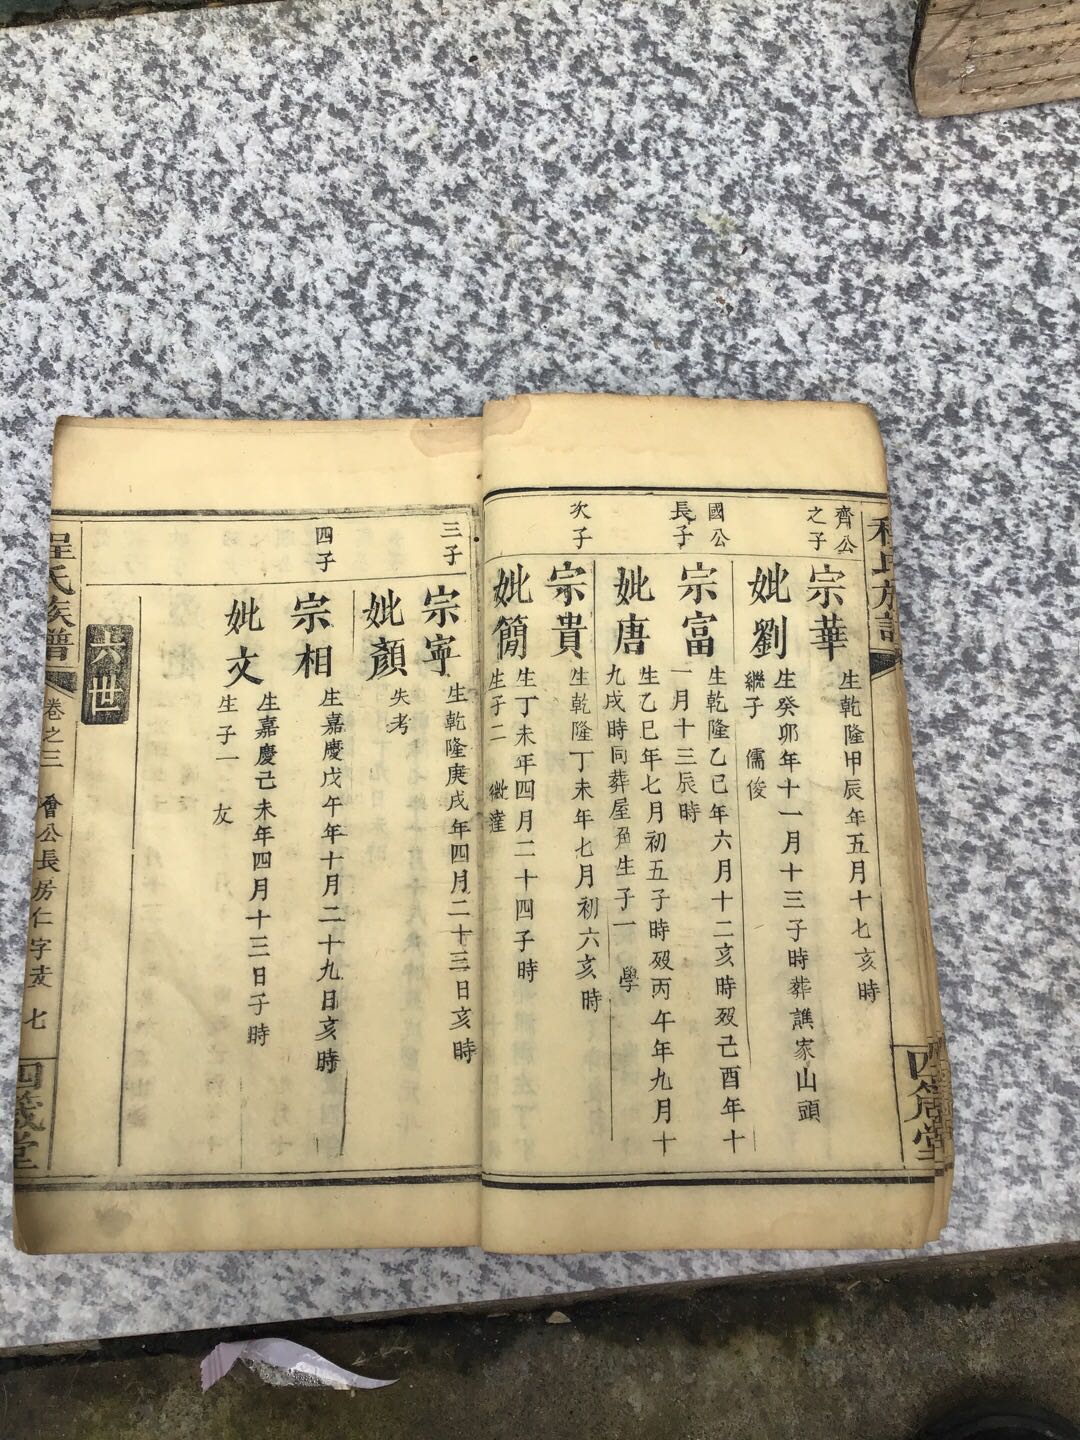 程氏族譜
四箴堂
齊公之子
宗華
生乾隆甲辰年五月十七亥時
妣劉
生癸卯年十一月十三子時葬譙家山頭
繼子 儒俊
國公長子
宗富
生乾隆乙巳年六月十二亥時殁己酉年十
一月十三辰時
妣唐
生乙巳年七月初五子時殁丙午年九月十
九戌時同葬屋角生子一 學
次子
宗貴
生乾隆丁未年七月初六亥時
妣簡
生丁未年四月二十四子時
生子二
三子
宗寧
生乾隆庚戌年四月二十三日亥時
妣顏
失考
四子
宗相
生嘉慶戊午年十月二十九日亥時
妣文
生嘉慶己未年四月十三日子時
生子一 友
六世
程氏族譜
卷之三 會公長房仁字支 七
四箴堂